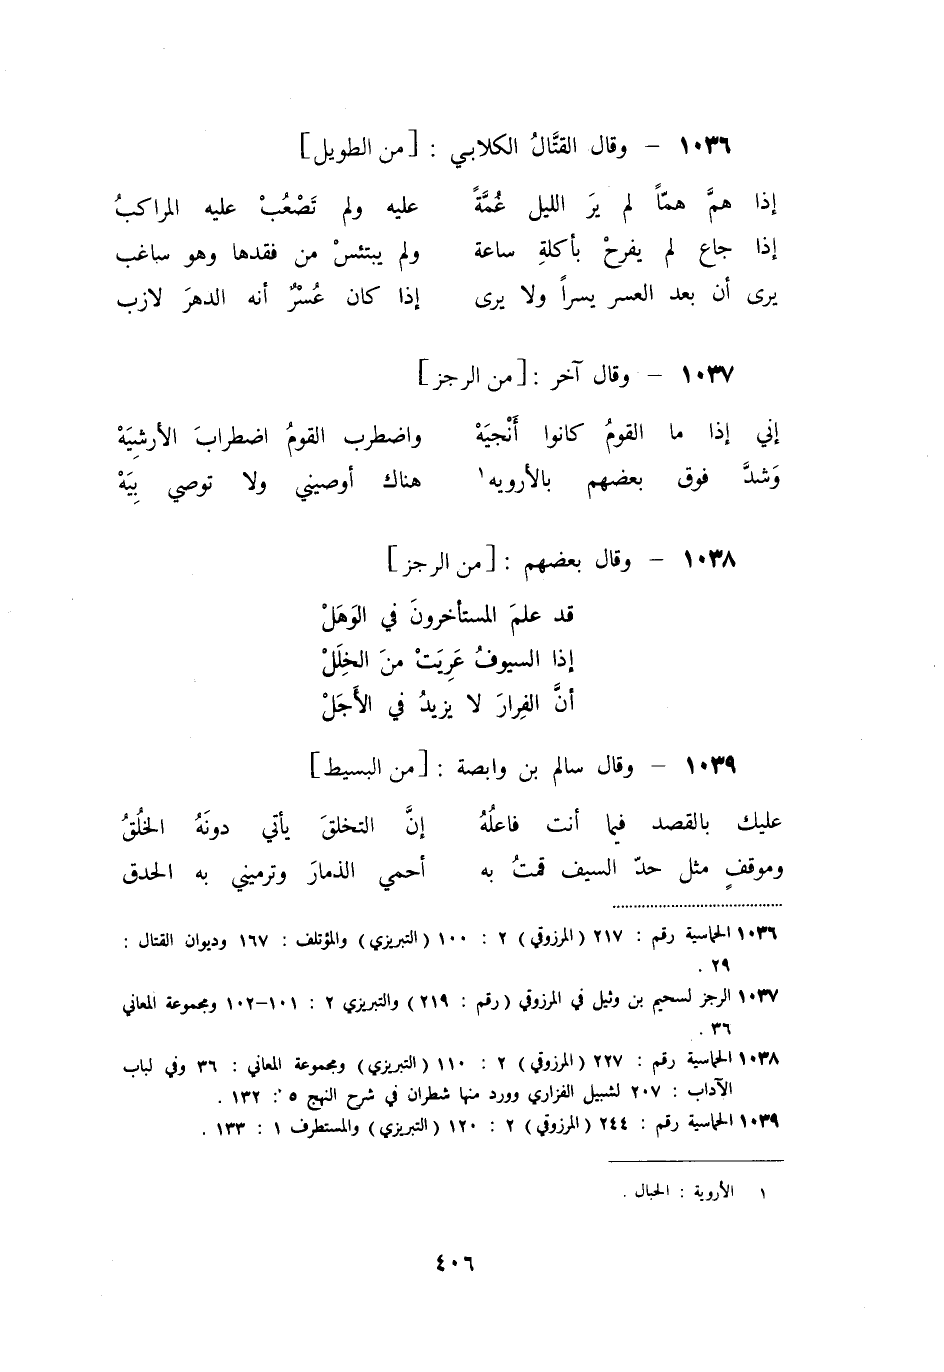 ١٠٣٦ – وقال القتَّالُ الكلابي : [من الطويل]
إذا همَّ همّاً لم يرَ الليل غُمَّةً عليه ولم تَصْعُبْ عليه المراكبُ
إذا جاع لم يفرحْ بأكلةِ ساعة ولم يبتئسْ من فقدها وهو ساغب
يرى أن بعد العسر يسراً ولا يرى إذا كان عُسْرٌ أنه الدهرَ لازب
١٠٣٧ – وقال آخر : [من الرجز]
إني إذا ما القومُ كانوا أَنْجيَهْ واضطرب القومُ اضطرابَ الأرشِيَهْ
وَشدَّ فوق بعضهم بالأرويه١ هناك أوصيني ولا توصي بِيَهْ
١٠٣٨ – وقال بعضهم : [من الرجز]
قد علمَ المستأخرونَ في الوَهَلْ
إذا السيوفُ عَرِيَتْ منَ الخِلَلْ
أنَّ الفِرارَ لا يزيدُ في الأَجَلْ
١٠٣٩ – وقال سالم بن وابصة : [من البسيط]
عليك بالقصد فيما أنت فاعلُهُ إنَّ التخلقَ يأتي دونَهُ الخُلُقُ
وموقفٍ مثل حدّ السيف قمتُ به أحمي الذمارَ وترميني به الحدق
١٠٣٦ الحماسية رقم : ٢١٧ (المرزوقي) ٢ : ١٠٠ (التبريزي) والمؤتلف : ١٦٧ وديوان القتال :
٢٩ .
١٠٣٧ الرجز لسحيم بن وثيل في المرزوقي (رقم : ٢١٩) والتبريزي ٢ : ١٠١–١٠٢ ومجموعة المعاني
٣٦ .
١٠٣٨ الحماسية رقم : ٢٢٧ (المرزوقي) ٢ : ١١٠ (التبريزي) ومجموعة المعاني : ٣٦ وفي لباب
الآداب : ٢٠٧ لشبيل الفزاري وورد منها شطران في شرح النهج ٥ : ١٣٢ .
١٠٣٩ الحماسية رقم : ٢٤٤ (المرزوقي) ٢ : ١٢٠ (التبريزي) والمستطرف ١ : ١٣٣ .
١ الأروية : الحبال .
٤٠٦